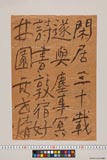 閑居三十載
遂與塵事冥
詩書敦宿好
林園無世情